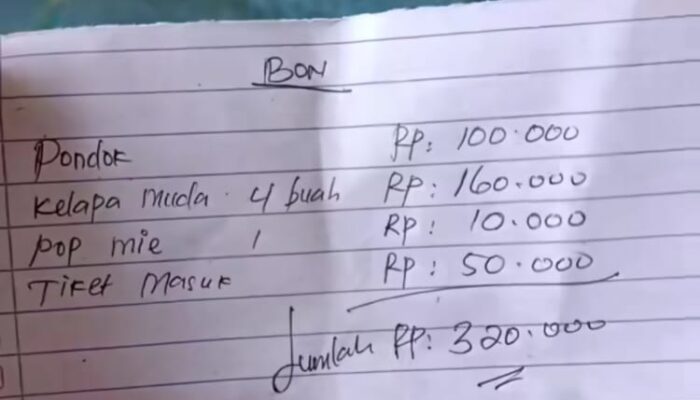 BON
Pondok RP: 100.000
Kelapa muda 4 buah RP: 160.000
POP mie 1 RP: 10.000
Tiket Masuk RP: 50.000
Jumlah RP: 320.000